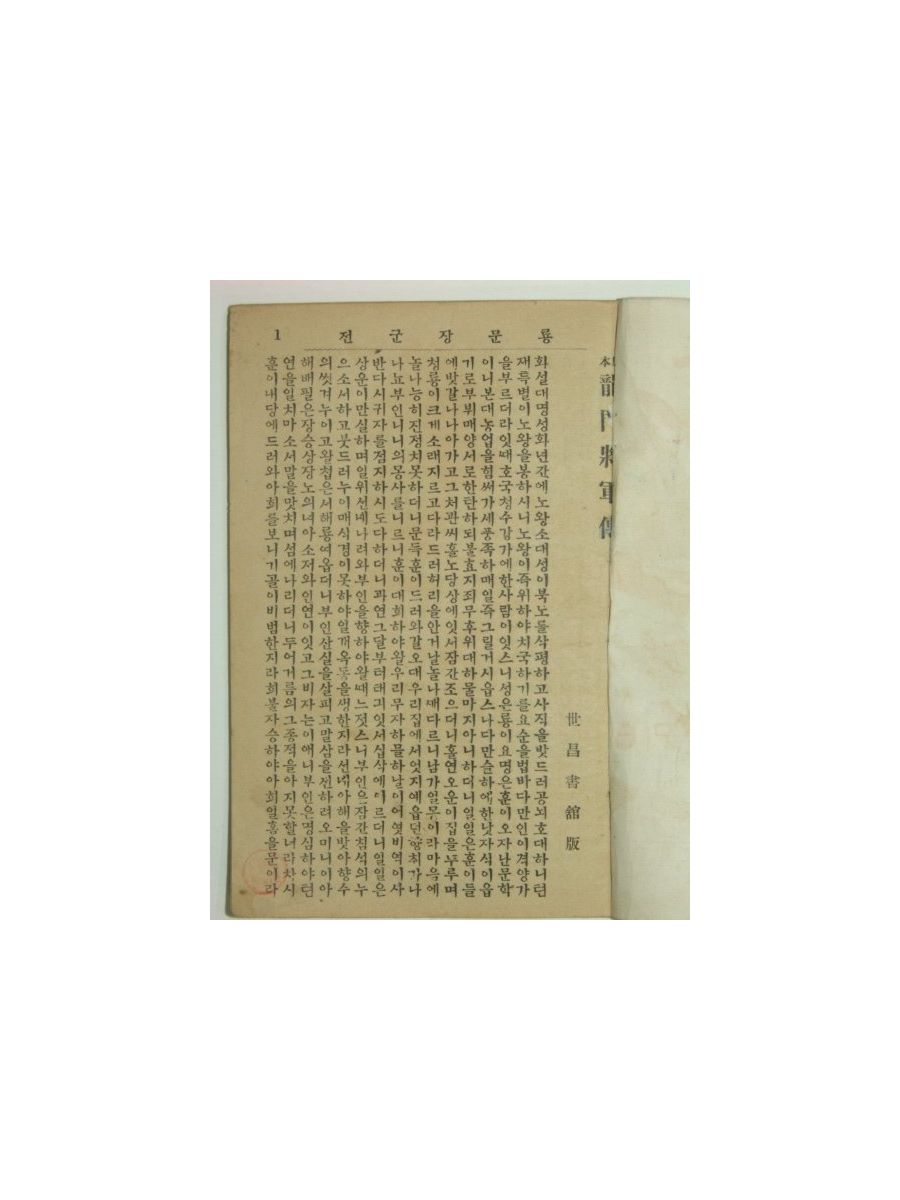 룡문장군전 1
本 龍門將軍傳
世昌書舘版
화설대명성화년간에노왕소대성이북노를삭평하고사직을밧드러공뇌호대하니텬
재특별이노왕을봉하시니노왕이즉위하야치국하기를요순을법바다만인이겨양가
을부르더라잇때호국청수갑가에한사람이잇스니성은룡이요명은훈이오자난문학
이니본대농업을힘써가세풍족하매일즉그릴거시읍스나다만슬하에한낫자식이읍
기로부뷔매양서로한탄하되불효지죄무후위대하물마지아니하더니일일은훈이들
에밧갈나나아가고그처관씨홀노당상에잇서잠간조으더니홀연오운이집을두루며
청룡이크게소래지르고다라드러허리을안거날놀나깨다르니남가일몽이라마음에
놀나능히진정치못하더니문득훈이드러와갈오대우리집에서엇지예읍던향취가나
나뇨부인니니의몽사를니르니훈이대희하야왈우리무자하믈하날이어엿비역이사
반다시귀자를점지하시도다하더니과연그달부터태긔잇서십삭에이르더니일일은
상운이만실하며일위선녜나려와부인을향하야왈때느젓스니부인은잠간침석의누
으소서하고붓드러누이매식경이못하야일개옥동을생한지라선녜아해을밧아향수
의씻겨누이고왈첩은서해룡여옵더니부인산실을살피고말삼을전하려오미니이아
해배필은장승상장노의녀아소저와인연이잇고그비자는이애니부인은명심하야텬
연을일치마소서말을맛치며섬에나리더니두어거름의그종적을아지못할너라차시
훈이내당에드러와아희를보니기골이비범한지라희불자승하야아희일홈을문이라